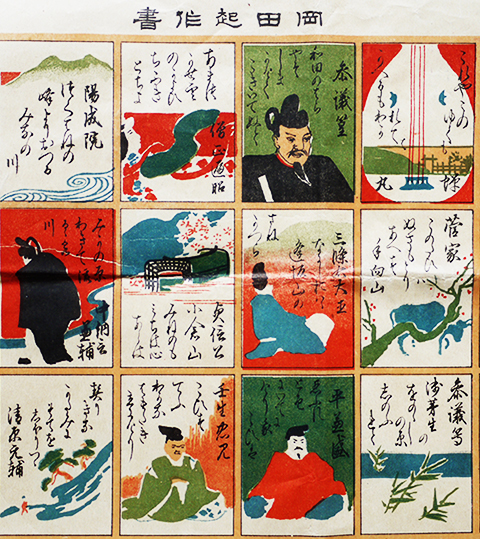 岡田起作書
これやこの
ゆくも
かへるもわか
れて
蝉
丸
参議篁
和田のはら
やそ
しま
かけて
こきいてぬと
あまつ
かせ雲
のかよひ
ちふき
とちよ
僧正遍昭
陽成院
つくはねの
峰よりおつる
みなの
川
菅家
このたひは
ぬさもとり
あへす
手向山
三條右大臣
なにしおはゝ
逢坂山の
さね
かつら
貞信公
小倉山
みねのも
みちは心
あらは
みかの原
わきて流
川
中納言
兼輔
参議等
浅茅生の
をのゝ
しの原
しのふ
れと
平兼盛
壬生忠見
こひす
てふ
わか名
はまたき
たちにけり
契り
きな
かたみに
そてを
しほりつゝ
清原元輔